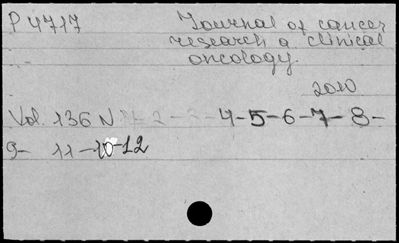 P 4717 Journal of cancer
research a clinical
oncology.
2010
Vol. 136 N 1-2-3-4-5-6-7-8-
9- 11-10-12